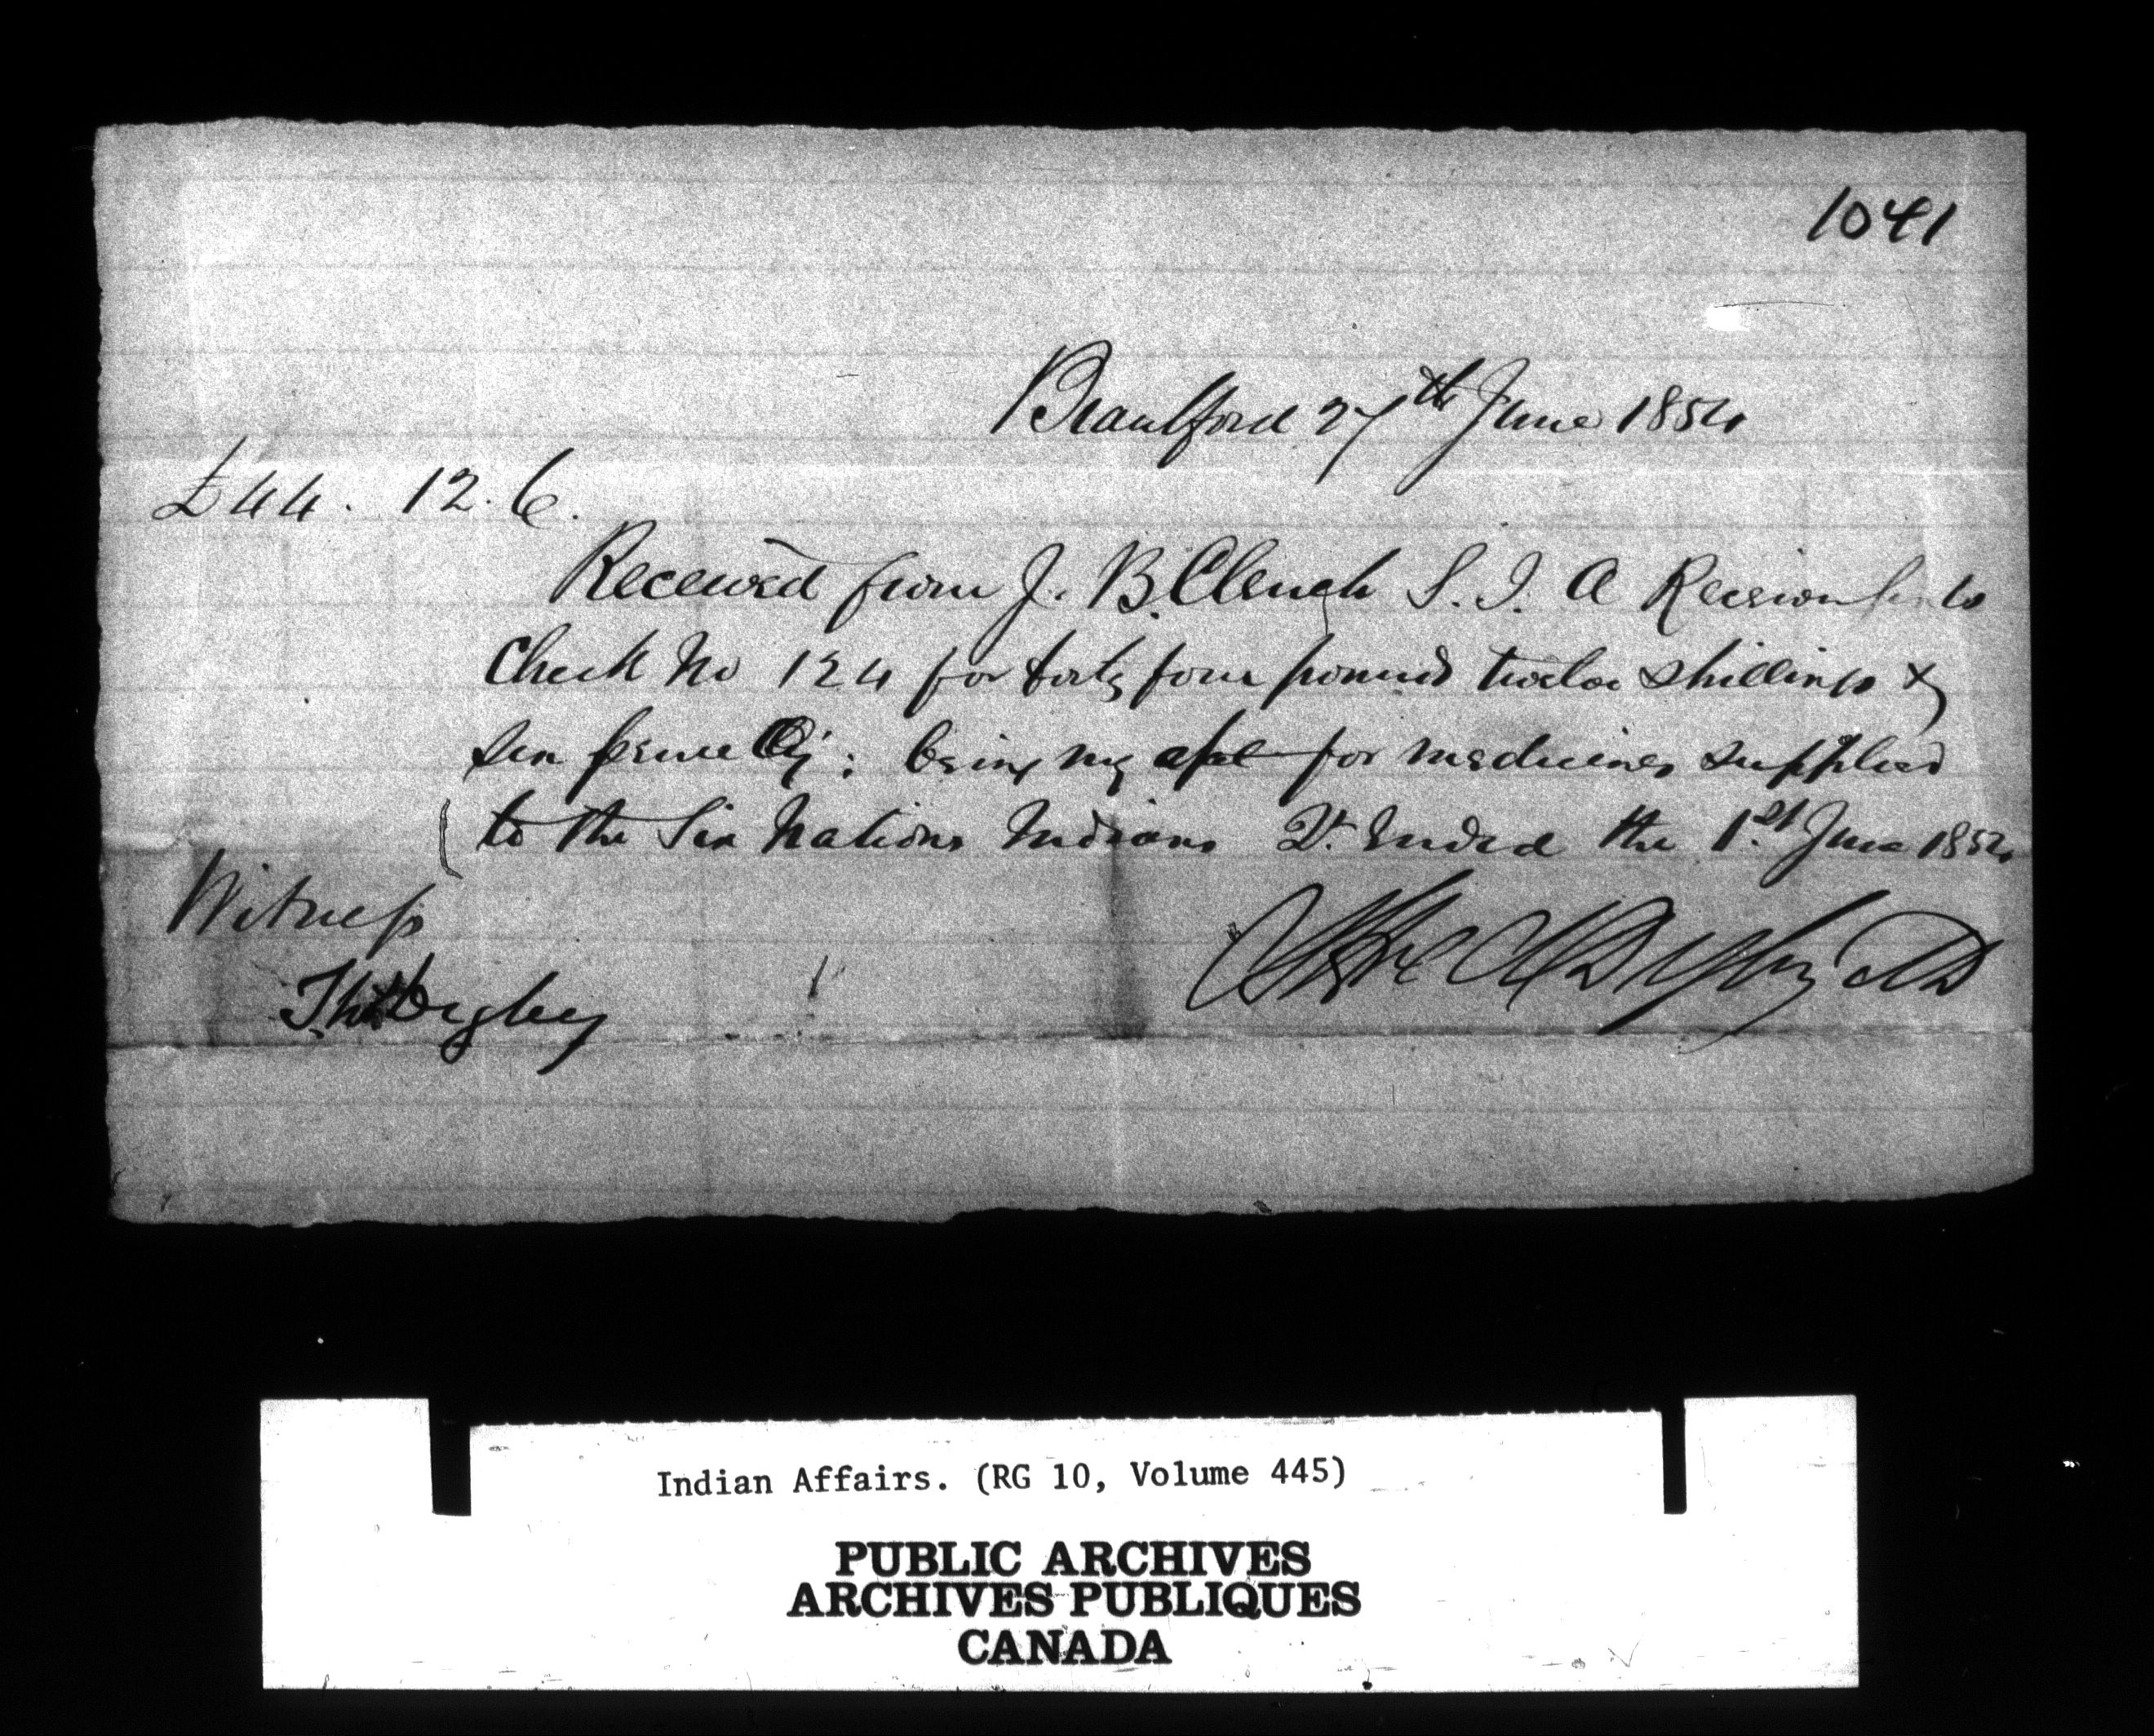 1041
Brantford 27th June 1854
£44. 12. 6.
Received from J. B. Clench S. I. A
Check No 124 for forty four pounds twelve shillings &
six pence Cy: being my for medicines supplied
to the Six Nations Indians Qr. Ended the 1st June 1854
Witness
Digby
Digby MD
Indian Affairs. (RG 10, Volume 445)
PUBLIC ARCHIVES
ARCHIVES PUBLIQUES
CANADA